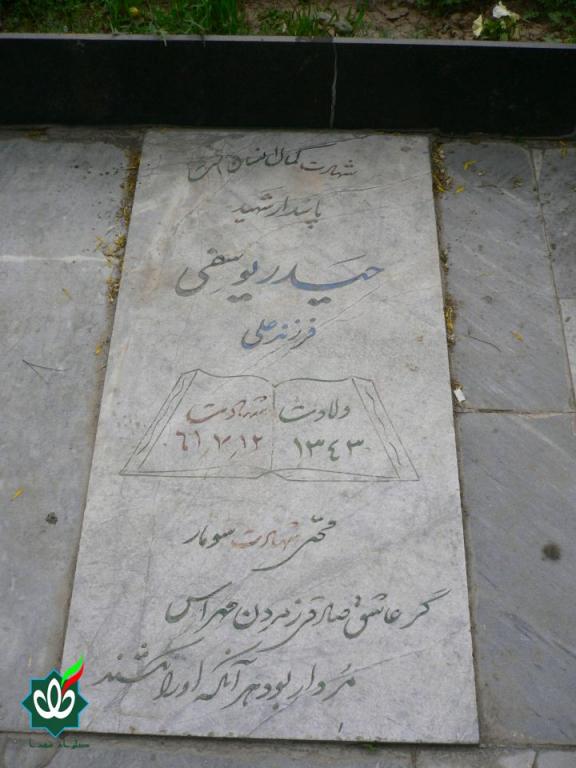 شهادت کمال انسان است
پاسدار شهید
حیدر یوسفی
فرزند علی
ولادت شهادت
۱۳۴۳ ۶۱٫۷٫۱۲
محل شهادت سومار
گر عاشق صادقی ز مردن مهراس
مردار بود هر آنکه او را نکشند